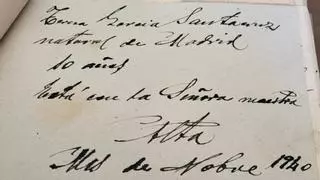 García Santacruz
natural de Madrid
10 años
Está con la Señora maestra
Alta
Mes de Nobre 1940